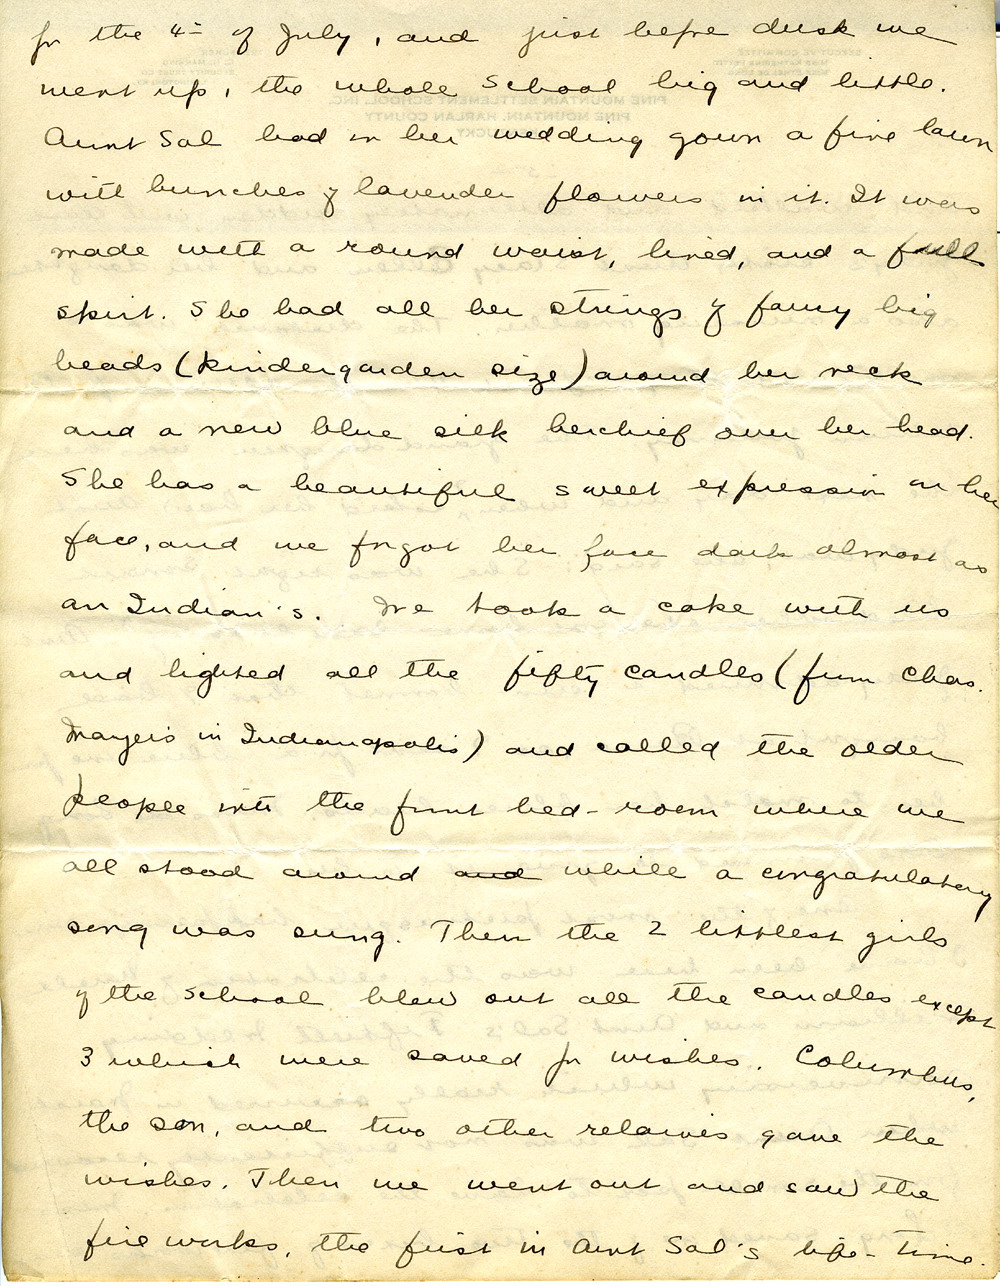 for the 4th of July, and just before dusk we
went up, the whole School big and little.
Aunt Sal had on her wedding gown a fine lawn
with bunches of lavender flowers in it. It was
made with a round waist, lined, and a full
skirt. She had all her strings of fancy big
beads (kindergarden size) around her neck
and a new blue silk kerchief over her head.
She has a beautiful sweet expression on her
face, and we forgot her face dark almost as
an Indian's. We took a cake with us
and lighted all the fifty candles (from Chas.
Mayers in Indianapolis) and called the older
people into the front bed-room where we
all stood around and while a congratulatory
song was sung. Then the 2 littlest girls
of the School blew out all the candles except
3 which were saved for wishes. Columbus,
the son, and two other relaives gave the
wishes. Then we went out and saw the
fire works, the first in Aunt Sal's life-time.
PINE MOUNTAIN SETTLEMENT SCHOOL, INC.
PINE MOUNTAIN, HARLAN COUNTY